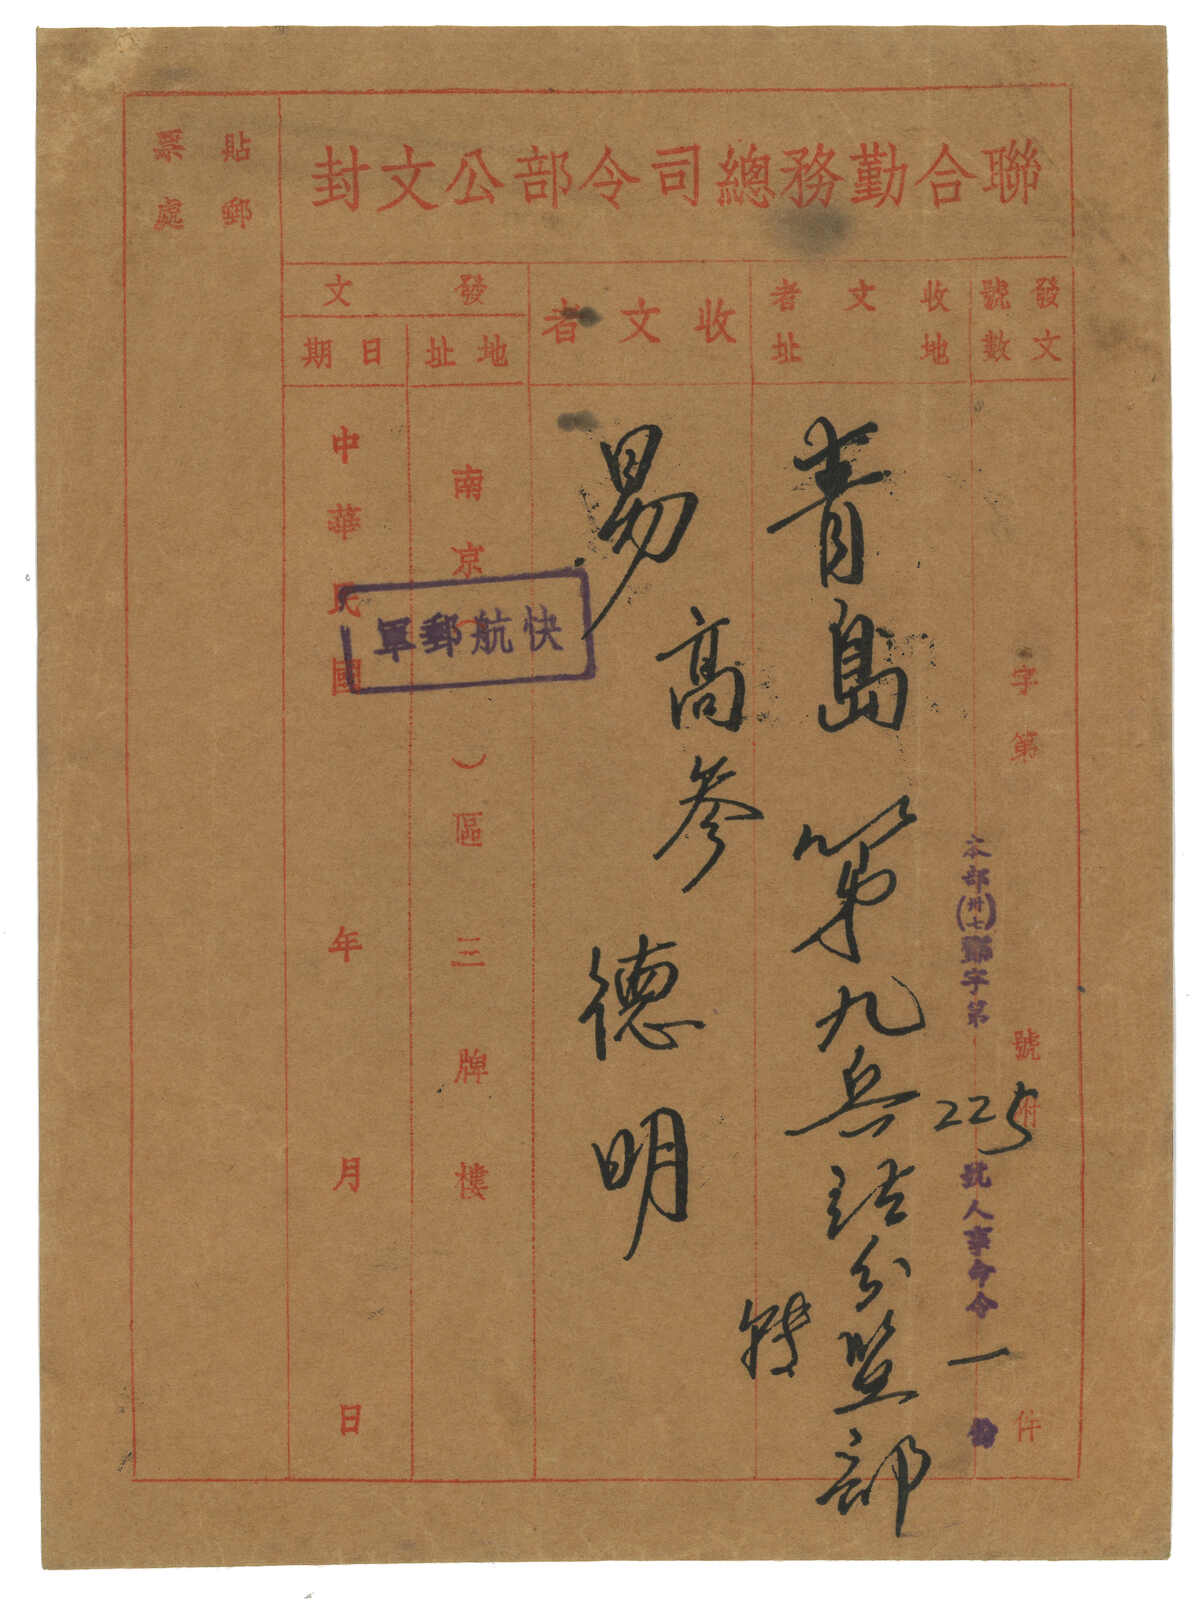 聯合勤務總司令部公文封
貼郵
票處
發文
號數
收文者
地址
收文者
發文
地址
日期
字第
號附
件
本部(卅七)
字第
225
號人事命令
一
份
青島第九兵站分监部
转
易高参德明
南京(
)區三牌樓
快航郵軍
中華民國
年
月
日